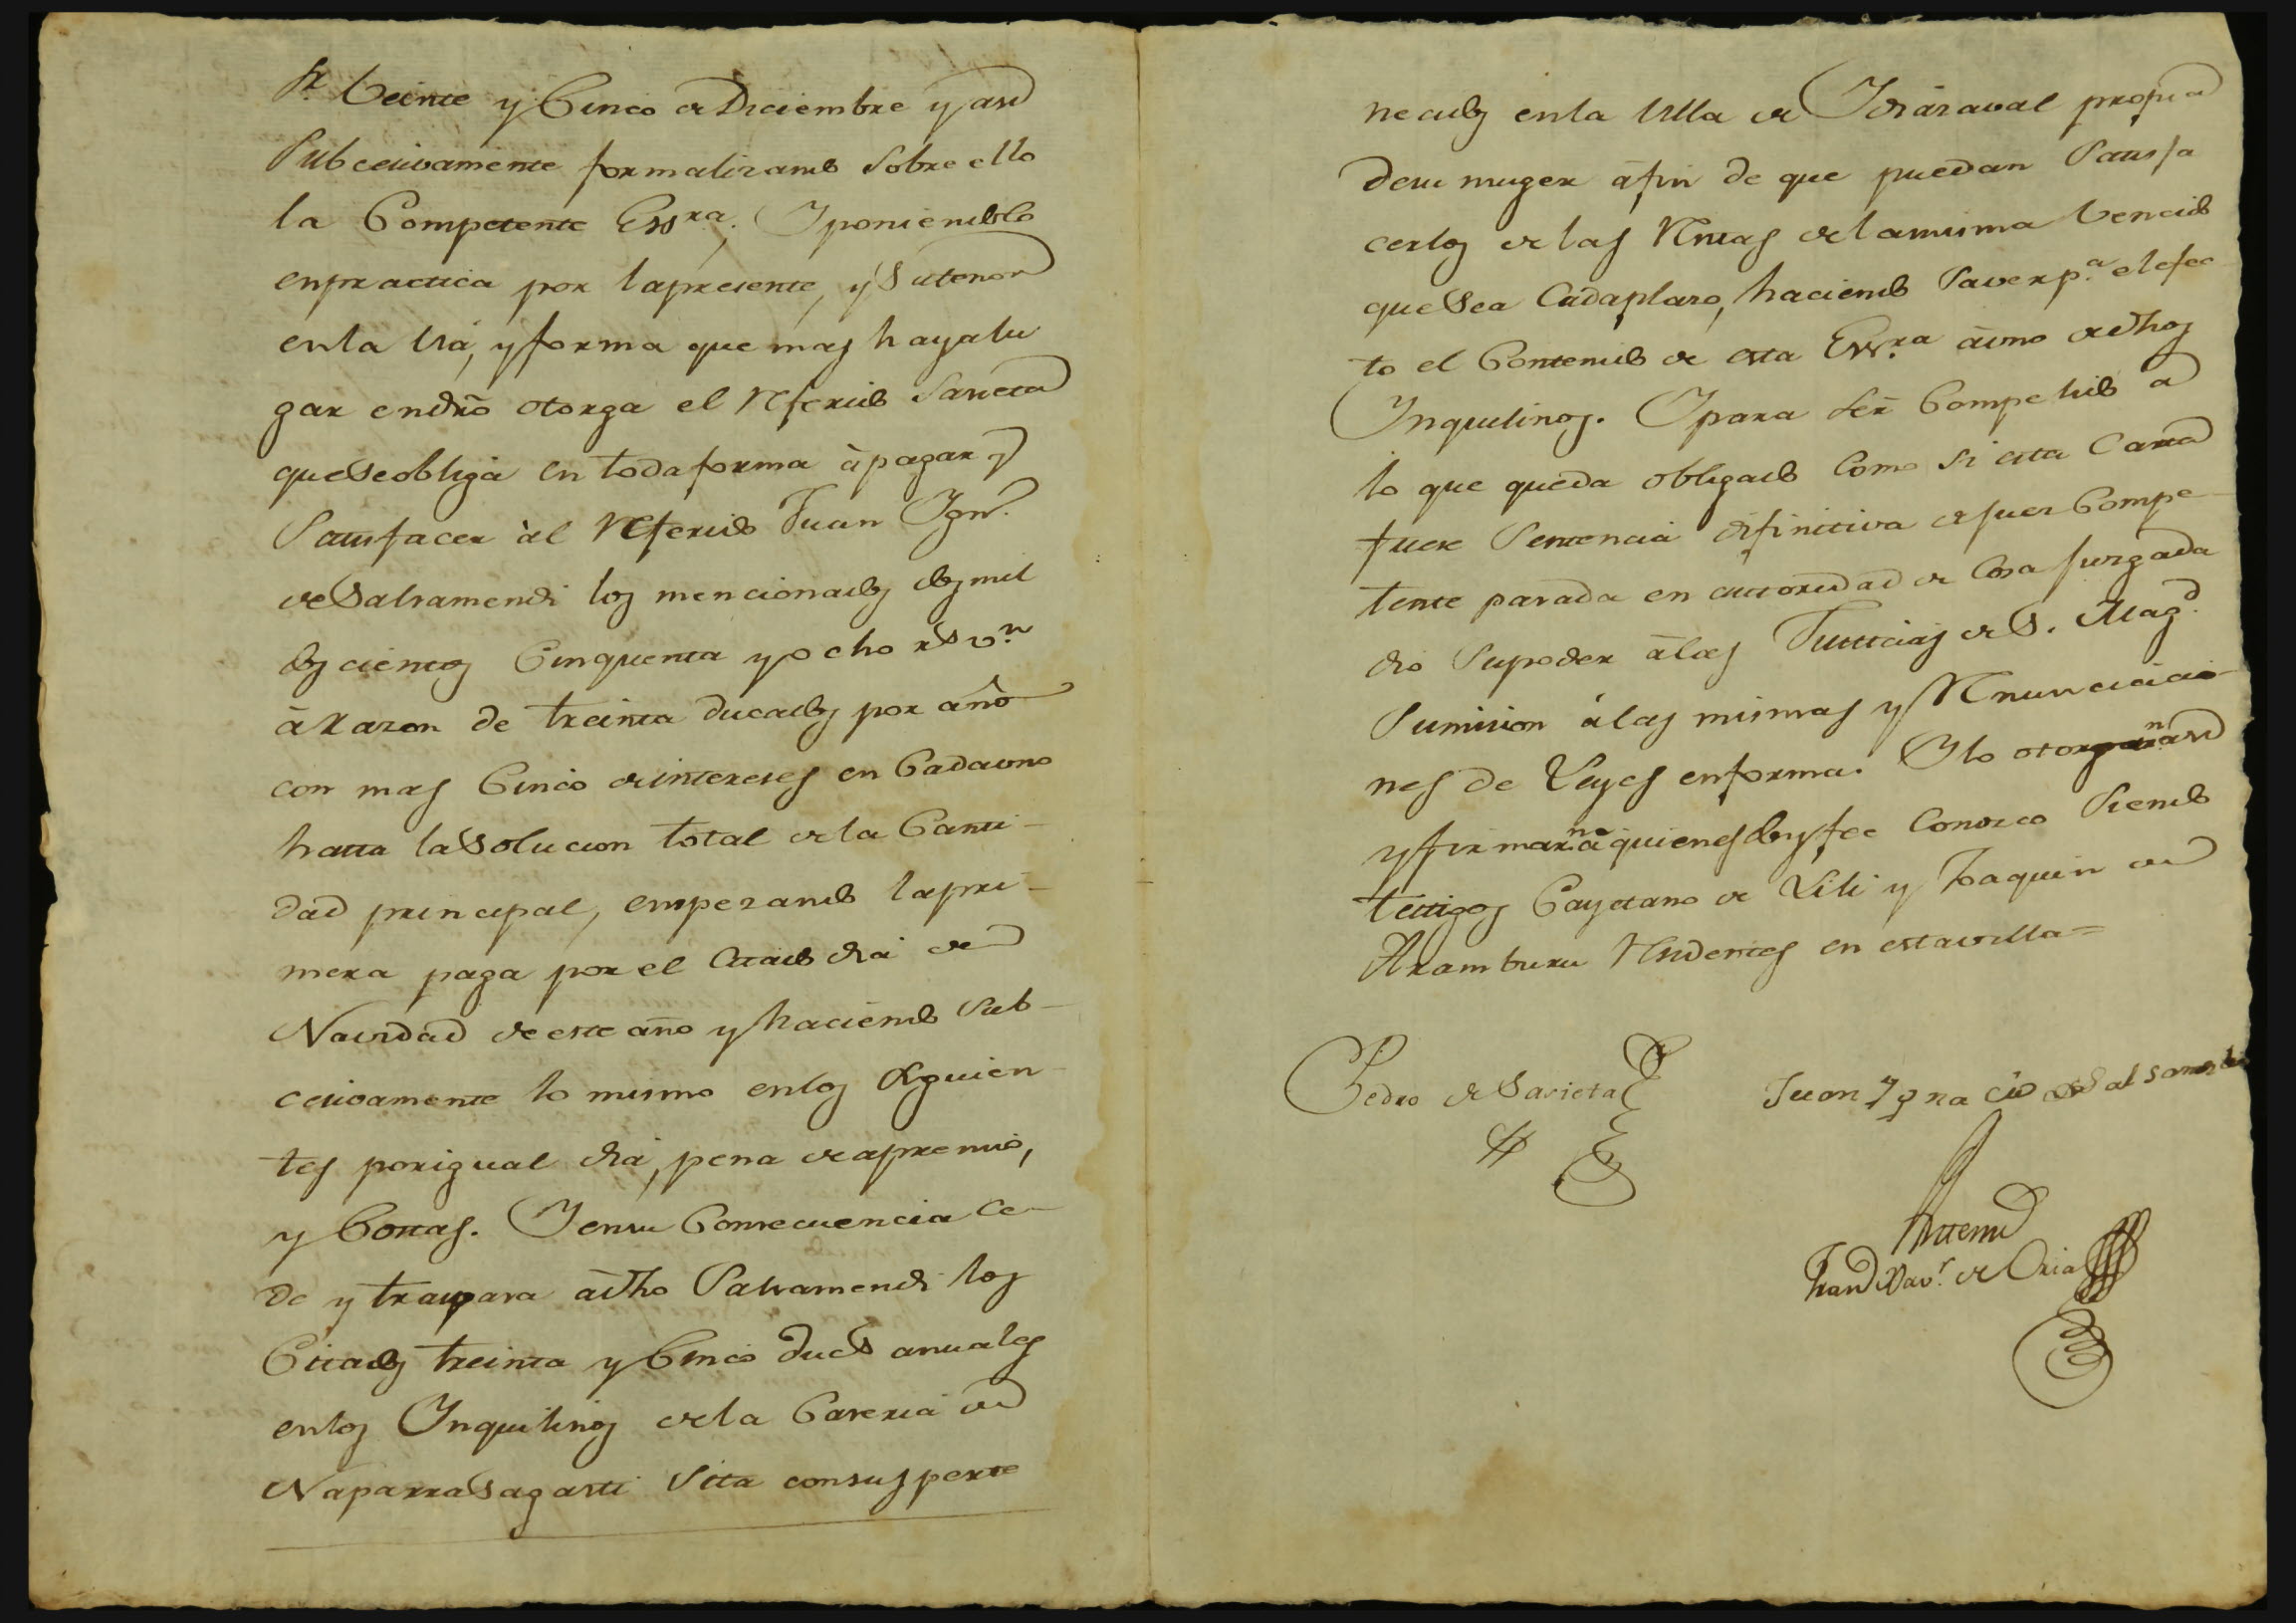 Veinte y Cinco de Diciembre y asi
Subcesivamente formalizando sobre ello
la Competente Essra; Y poniendolo
en practica por la presente, y su tenor
en la via, y forma que mas haya lu
gar en dro otorga el referido Sarieta
que se obliga en toda forma à pagar y
Satisfacer àl referido Juan Ygno.
de Salsamendi los mencionados dos mil
dos cientos Cinquenta y ocho rs vn
à razon de treinta ducados por año
con mas Cinco de intereses en Cada uno
hasta la solucion total de la Canti-
dad principal, empezando la pri-
mera paga por el Citado dia de
Navidad de este año y haciendo Sub-
cesivamente lo mismo en los siguien-
tes por igual dia, pena de apremio,
y Costas. Y en su Consecuencia Ce-
de y traspasa a dho Salsamendi los
Citados treinta y Cinco ducs anuales
en los Ynquilinos de la Caseria de
Naparrasagasti Sita con sus perte
necidos en la Villa de Ydiazaval propia
de su muger àfin de que puedan Satisfa
cerlos de las rentas de la misma vencido
que sea Cada plazo, haciendo Saver pa. el efec
to el Contenido de esta Essra à uno de dhos
Ynquilinos. Y para ser Compelido a
lo que queda obligado Como si esta Carta
fuere Sentencia difinitiva de juez Compe-
tente pasada en autoridad de Cosa juzgada
dio su poder à las Justicias de S. Magd.
Sumision à las mismas y renunciacio-
nes de Leyes en forma. Y lo otorgaron asi
y firmaron à quienes doy fee Conozco Siendo
testigos Cayetano de Lili y Joaquin de
Aramburu residentes en esta villa=
Pedro de Sarieta
Juan Ygnacio de Salsamendi
Ante mi
Franco Xavr. de Oria